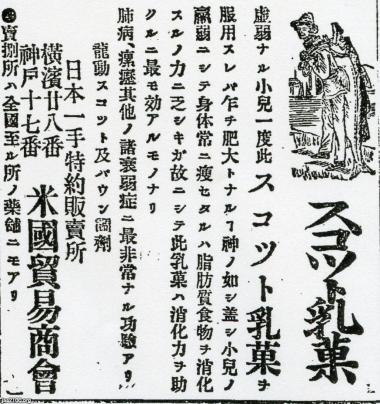 スコツト乳菓
虚弱ナル小兒一度此スコツト乳菓ヲ
服用スレバ乍チ肥大トナルヿ神ノ如シ盖シ小兒ノ
羸弱ニシテ身体常ニ瘦セタルハ脂肪質食物ヲ消化
スルノ力ニ乏シキガ故ニシテ此乳菓ハ消化力ヲ助
クルニ最モ効アルモノナリ
肺病、瘰癧其他ノ諸衰弱症ニ最非常ナル功驗アリ
龍動スコット及バウン調劑
日本一手特約販賣所
橫濱廿八番
神戶十七番
米國貿易商會
●賣捌所ハ全國至ル所ノ藥舖ニモアリ